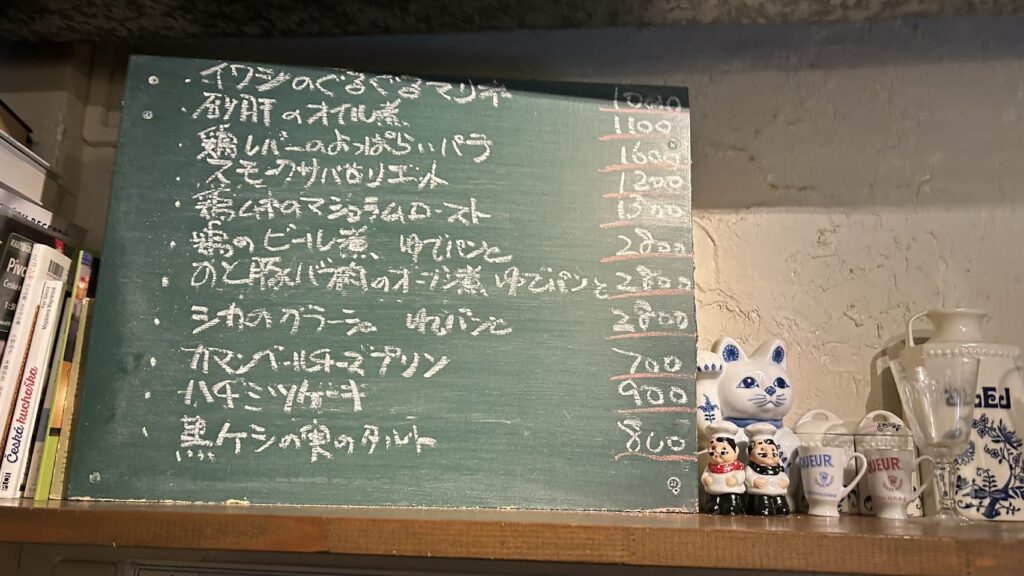 ・イワシのぐるぐるマリネ 1000
・砂肝のオイル煮 1100
・鶏レバーのよっぱらいパテ 1600
・スモークサバのリエット 1200
・鶏ムネのマジョラムロースト 1300
・鴨のビール煮 ゆでパンと 2800
・のと豚バラ肉のオーブン煮 ゆでパンと 2800
・シカのグラーシュ ゆでパンと 2800
・カマンベールチーズプリン 700
・ハチミツケーキ 900
・黒ケシの実のタルト 800
Pivo
Česká kuchařka